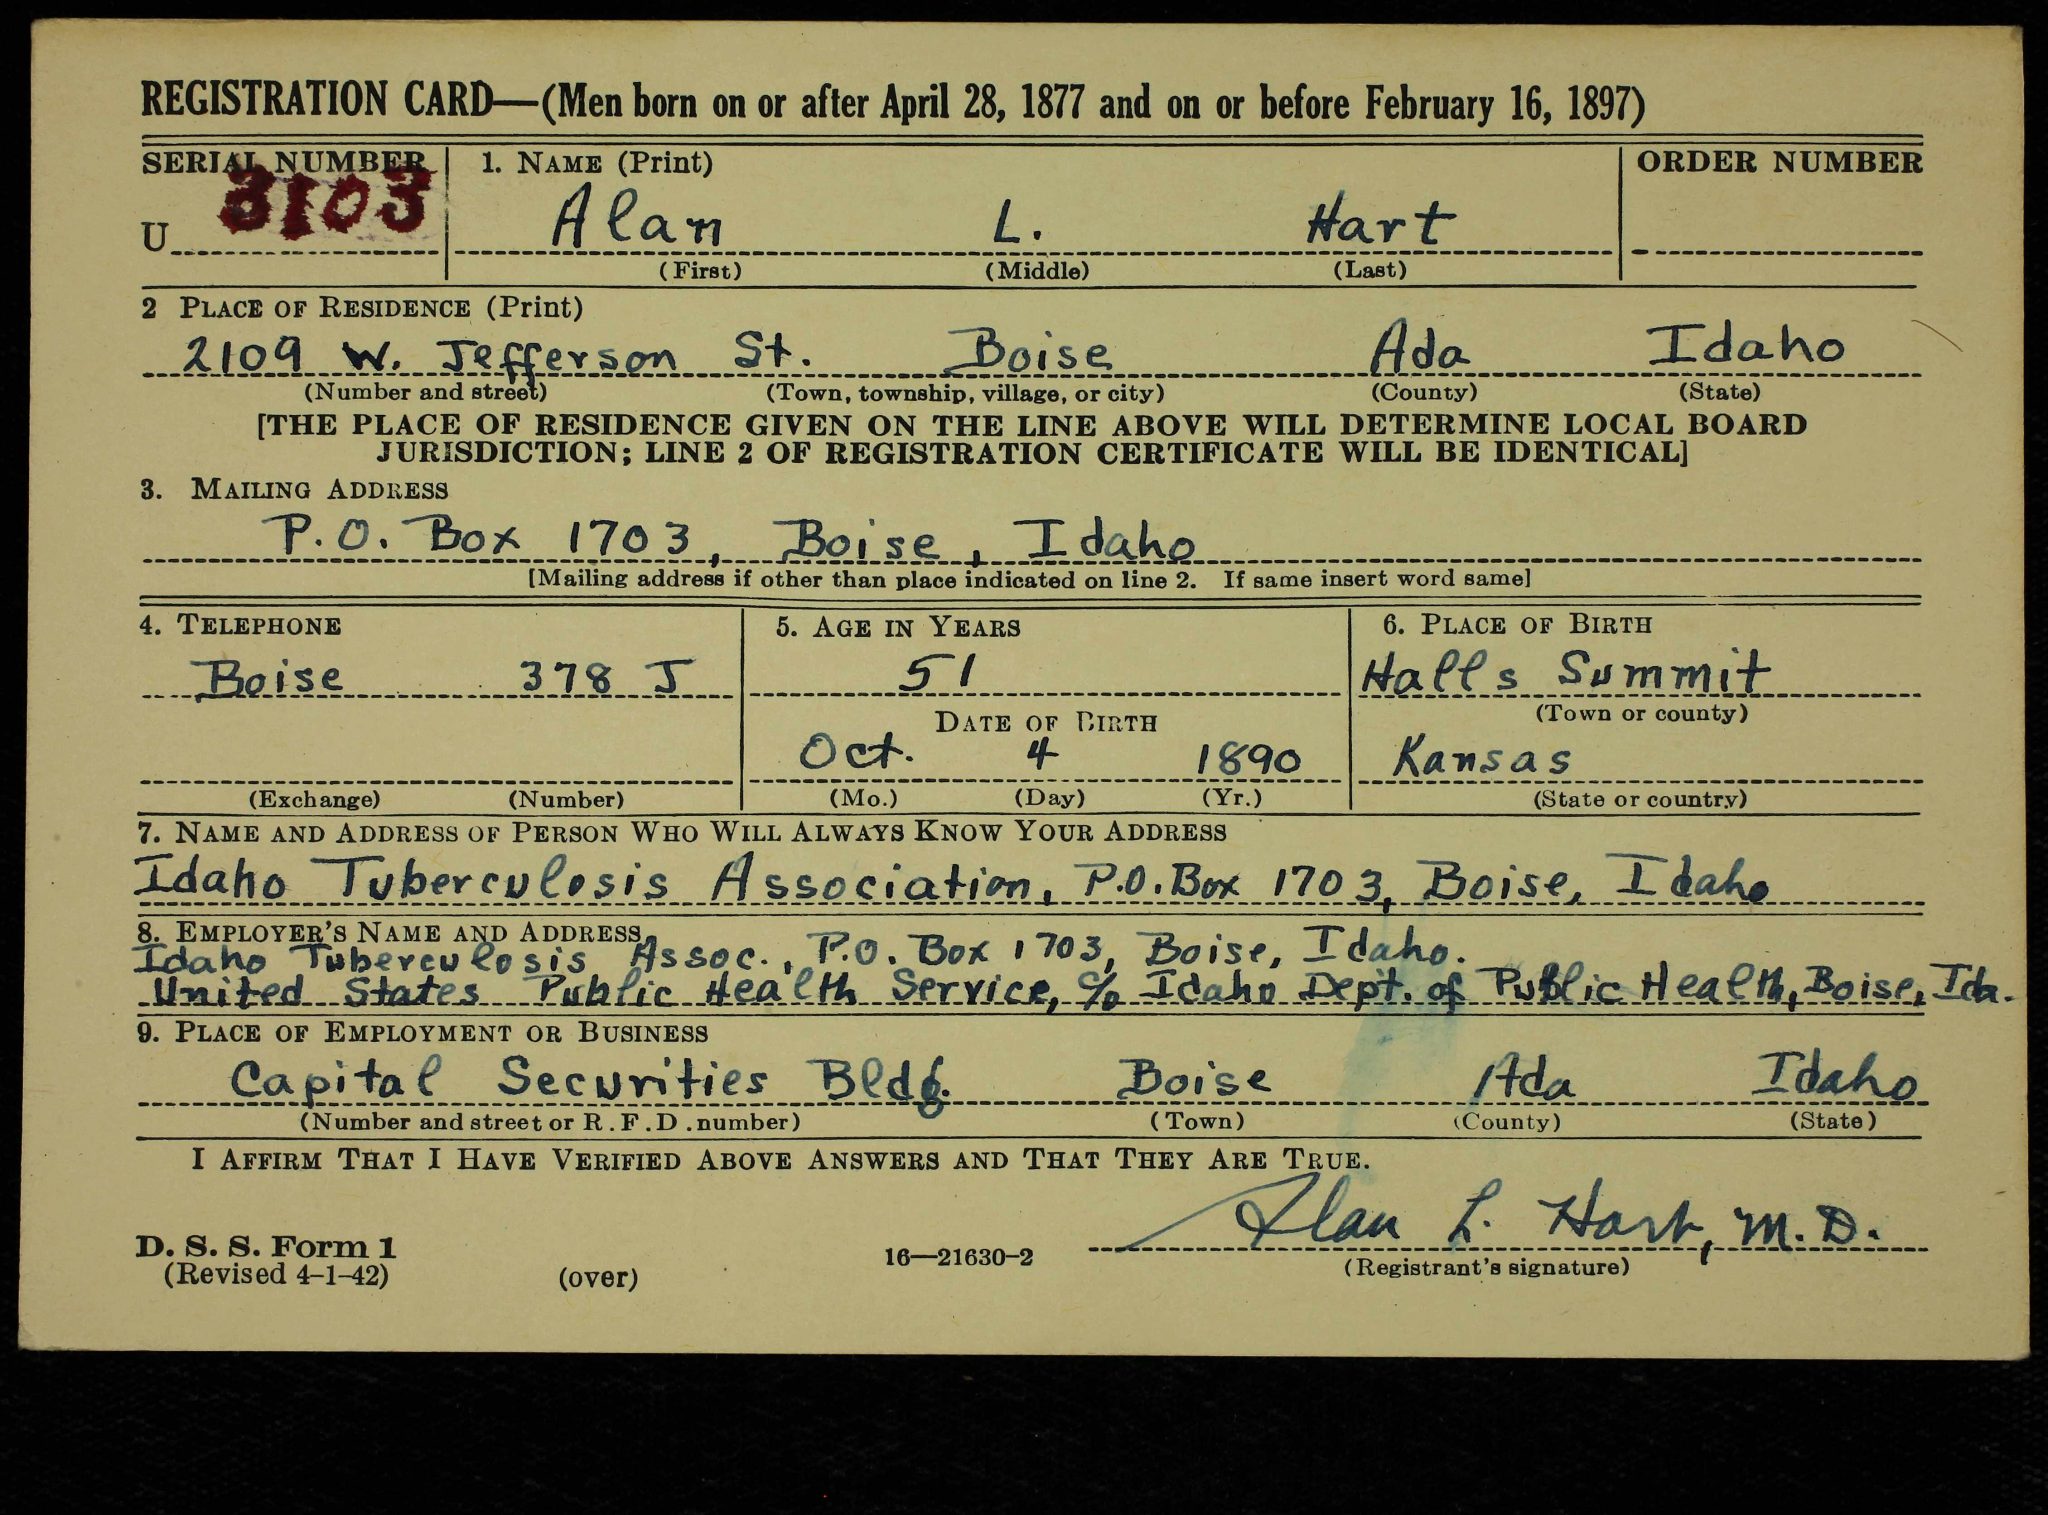 REGISTRATION CARD—(Men born on or after April 28, 1877 and on or before February 16, 1897)
SERIAL NUMBER 1. NAME (Print) ORDER NUMBER
U 3103 Alan L. Hart
(First) (Middle) (Last)
2 PLACE OF RESIDENCE (Print)
2109 W. Jefferson St. Boise Ada Idaho
(Number and street) (Town, township, village, or city) (County) (State)
[THE PLACE OF RESIDENCE GIVEN ON THE LINE ABOVE WILL DETERMINE LOCAL BOARD
JURISDICTION; LINE 2 OF REGISTRATION CERTIFICATE WILL BE IDENTICAL]
3. MAILING ADDRESS
P.O. Box 1703, Boise, Idaho
[Mailing address if other than place indicated on line 2. If same insert word same]
4. TELEPHONE 5. AGE IN YEARS 6. PLACE OF BIRTH
Boise 378 J 51 Halls Summit
(Town or county)
DATE OF BIRTH
Oct. 4 1890 Kansas
(Exchange) (Number) (Mo.) (Day) (Yr.) (State or country)
7. NAME AND ADDRESS OF PERSON WHO WILL ALWAYS KNOW YOUR ADDRESS
Idaho Tuberculosis Association, P.O. Box 1703, Boise, Idaho
8. EMPLOYER'S NAME AND ADDRESS
Idaho Tuberculosis Assoc., P.O. Box 1703, Boise, Idaho.
United States Public Health Service, c/o Idaho Dept. of Public Health, Boise, Ida.
9. PLACE OF EMPLOYMENT OR BUSINESS
Capital Securities Bldg. Boise Ada Idaho
(Number and street or R.F.D. number) (Town) (County) (State)
I AFFIRM THAT I HAVE VERIFIED ABOVE ANSWERS AND THAT THEY ARE TRUE.
Alan L. Hart, M.D.
D. S. S. Form 1 16—21630-2
(Revised 4-1-42) (over) (Registrant's signature)